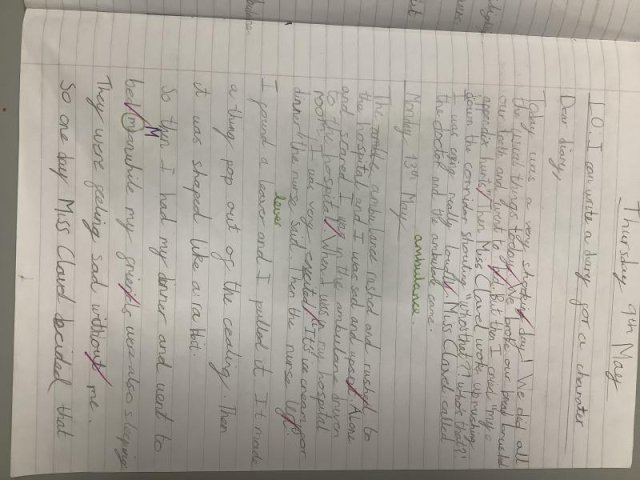 Thursday 9th May
LO. I can write a diary for a character
Dear diary,
Today was a very shocking day! We did all
the usual things today. We broke our bread, brushed
our teeth and went to bed. But then I cried "my
appendix hurts" then Miss Clavel woke up rushing
down the corridor shouting "whos that?! who's that?!"
I was crying really loud. Miss Clavel called
the doctor and the ambulance came.
ambulance
Monday 13th May
The ambulance rushed and rushed to
the hospital and I was sad and upset. Alone
and scared I was in the ambulance driven
to the hospital. When I was in my hospital
room, I was very excited. "It's ice cream for
dinner" the nurse said. Then the nurse left.
lever
I found a leaver and I pulled it. It made
a thing pop out of the ceiling. Then
it was shaped like a rabbit.
So then I had my dinner and went to
M
bed meanwhile my friends were also
They were feeling sad without me.
So one day Miss Clavel decided that